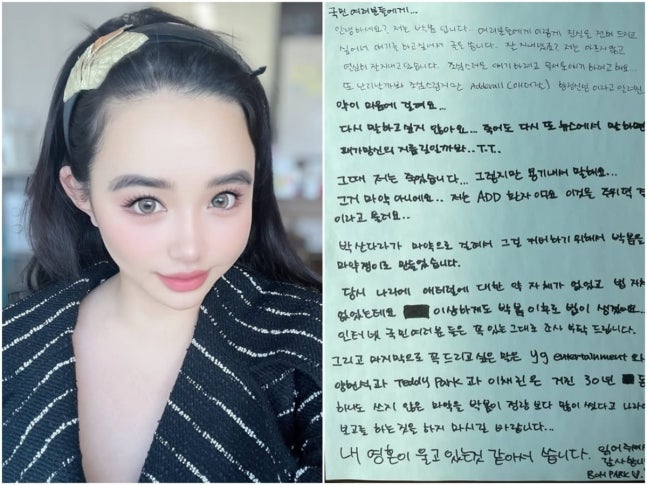 국민 여러분들에게...
안녕하세요? 저는 박봄 입니다. 여러분들에게 이렇게 진심을 전해 드리고
싶어서 얘기를 하고싶어서 글을 씁니다. 잘 지내셨죠? 저는 아프지않고
열심히 잘지내고있습니다. 조심스러운 얘기하려고 들어온얘기하려고해요...
또 난리난까봐 조심스럽지만 Adderall (애더럴)
약이 마음에 걸려요...
다시 말하고싶지 않아요... 죽어도 다시 또 뉴스에서 말하면
패가망신의 지름길일까봐..T.T.
그때 저는 죽었습니다... 그렇지만 용기내서 말해요...
그거 마약 아니에요.. 저는 ADD 환자 이고요 이것을 주위력
이라고 불러요..
박산다라가 마약으로 걸려서 그걸 커버하기 위해서 박봄을
마약쟁이로 만들었습니다.
당시 나라에 애더럴에 대한 약 자체가 없었고 법 자체
없었는데요 이상하게도 박봄 이후로 법이 생겼어요..
인터넷 국민여러분 들은 꼭 있는그대로 조사 부탁 드립니다.
그리고 마지막으로 꼭드리고싶은 말은 yg entertainment 와
양현석과 Teddy Park 과 이채린은 거진 30년
하나도 쓰지 않은 마약을 박봄이 정량 보다 많이 썼다고 나라에
보고를 하는것을 하지 마시길 바랍니다...
내 영혼이 울고 있는것 같아서 씁니다. 읽어주셔서
감사합니다
BOM PARK